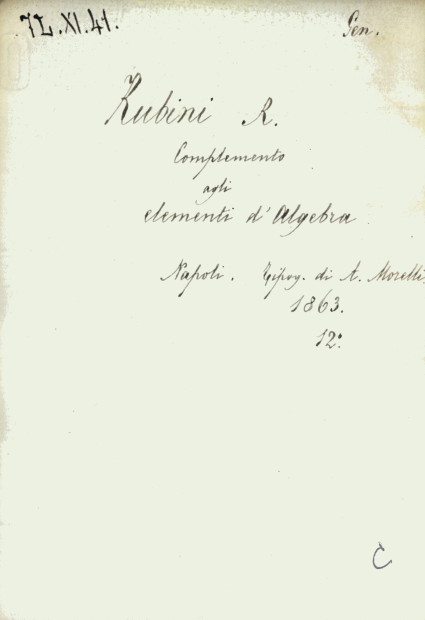 7L.XI.41.
Gen.
Rubini R.
Complemento
agli
elementi d'Algebra
Napoli. Tipog. di A. Morelli,
1863.
12°.
C